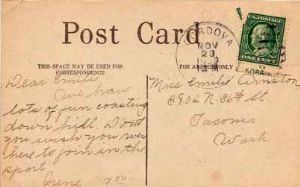 Post Card
CORDOVA
NOV
23
THIS SPACE MAY BE USED FOR
CORRESPONDENCE
FOR ADDRESS ONLY
ONE CENT
Dear Emilie
We
lots of fun coasting
down hill Don't
you wish you were
here to join in the
sport.
Irene
Miss Emilie
N. 36th St.
Tacoma
Wash